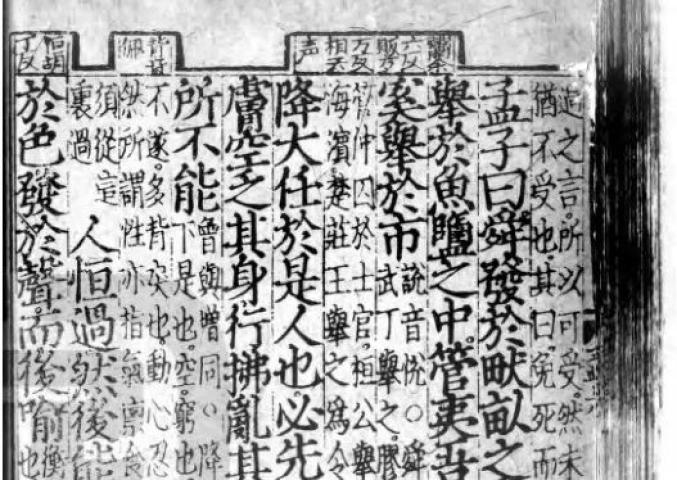 六反
万反
相去
声
恒胡
丁反
道之言。所以可受。然未
猶不受也。其曰。免死而
孟子曰。舜發於畎畝之
舉於魚鹽之中。管夷吾
奚舉於市
說音悅○舜
武丁舉之。膠
管仲囚於士官。桓公舉
海濱。楚莊王舉之爲令
降大任於是人也。必先
膚。空乏其身。行拂亂其
所不能
曾與增同○降
下是也。空。窮也
不遂。多背戾也。動心忍
然所謂性。亦指氣稟食
須從這
裏過
人恒過。然後能
於色。發於聲。而後喻
衡
也